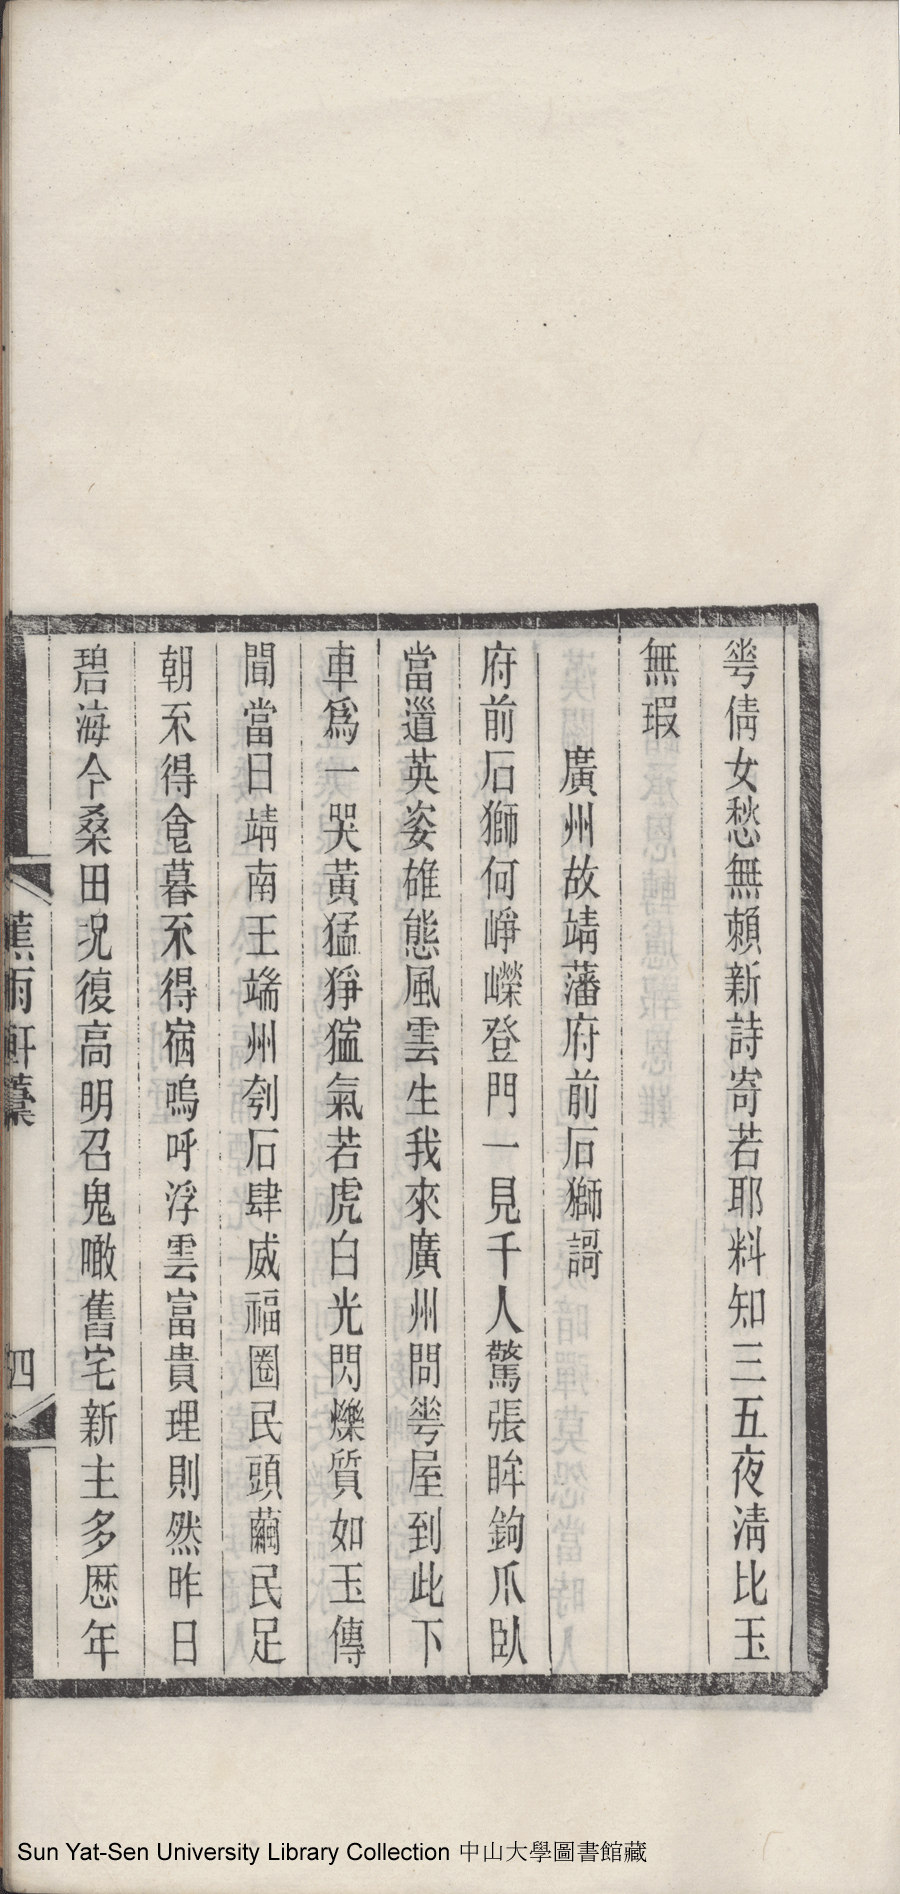 雩倩女愁無賴新詩寄若耶料知三五夜淸比玉
無瑕
廣州故靖藩府前石獅謌
府前石獅何崢嶸登門一見千人驚張眸鉤爪臥
當道英姿雄態風雲生我來廣州問雩屋到此下
車爲一哭黃猛猙獰氣若虎白光閃爍質如玉傳
聞當日靖南王端州刳石肆威福圈民頭繭民足
朝不得食暮不得宿嗚呼浮雲富貴理則然昨日
碧海今桑田況復高明召鬼瞰舊宅新主多歷年
蕉雨軒藁
四
Sun Yat-Sen University Library Collection 中山大學圖書館藏